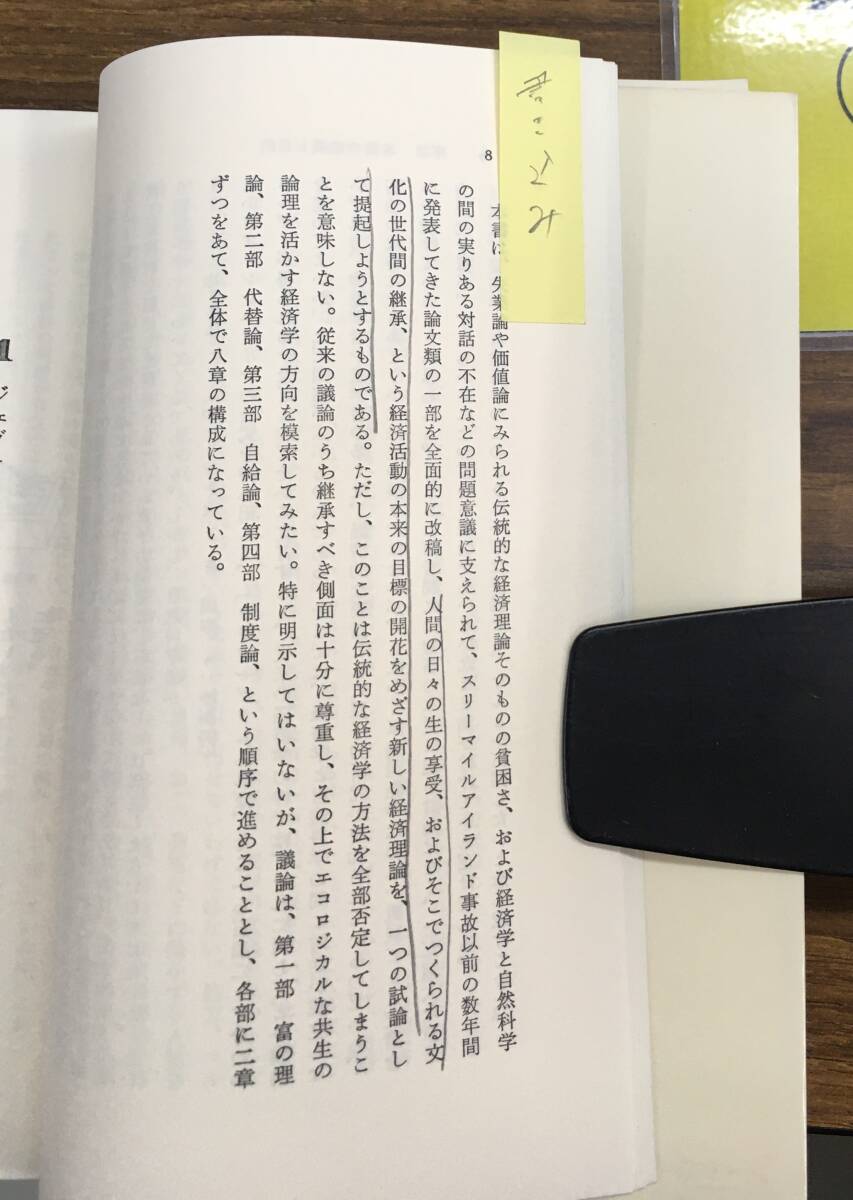 書きこみ
8
本書は、失業論や価値論にみられる伝統的な経済理論そのものの貧困さ、および経済学と自然科学
の間の実りある対話の不在などの問題意識に支えられて、スリーマイルアイランド事故以前の数年間
に発表してきた論文類の一部を全面的に改稿し、人間の日々の生の享受、およびそこでつくられる文
化の世代間の継承、という経済活動の本来の目標の開花をめざす新しい経済理論を、一つの試論とし
て提起しようとするものである。ただし、このことは伝統的な経済学の方法を全部否定してしまうこ
とを意味しない。従来の議論のうち継承すべき側面は十分に尊重し、その上でエコロジカルな共生の
論理を活かす経済学の方向を模索してみたい。特に明示してはいないが、議論は、第一部　富の理
論、第二部　代替論、第三部　自給論、第四部　制度論、という順序で進めることとし、各部に二章
ずつをあて、全体で八章の構成になっている。